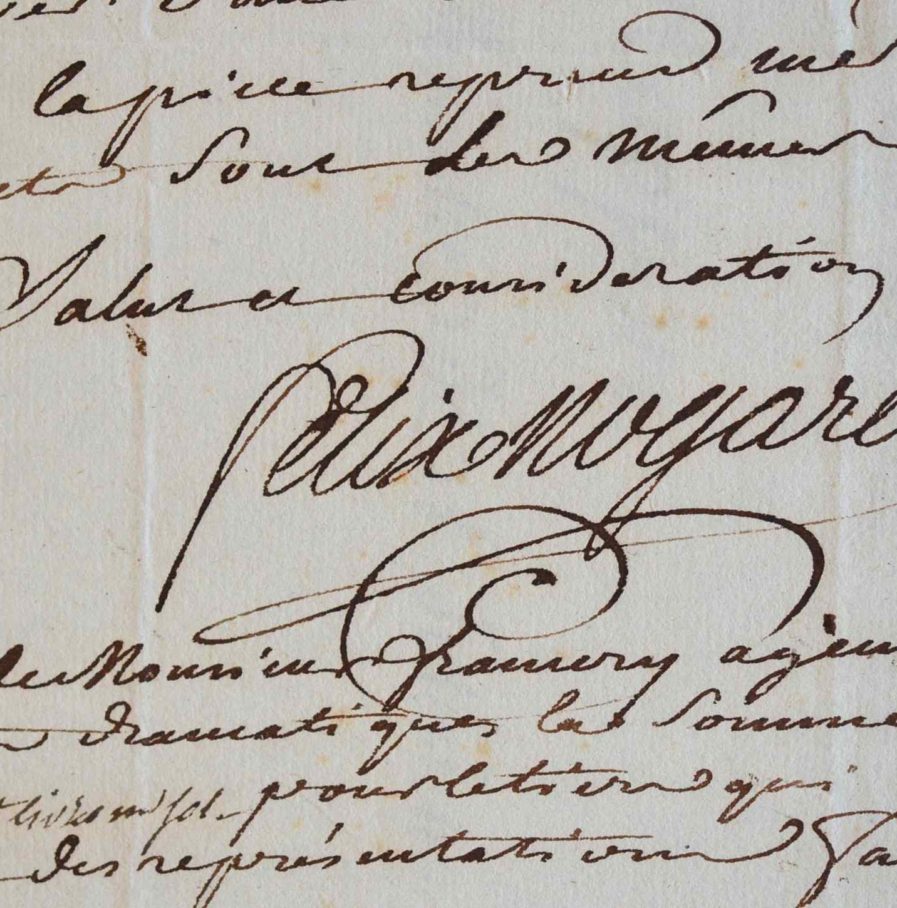 la piece reprend mê
sont des mêmes
Salut et consideration
Felix Nogare
de Monsieur Framery agen
dramatiques la Somme
pour le tiers qui
des représentations